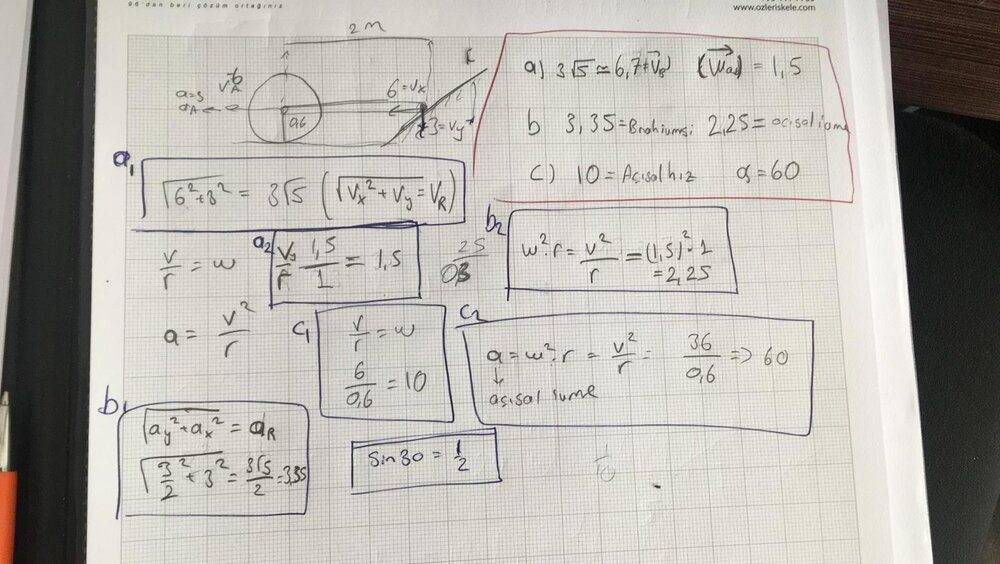 96'dan beri çözüm ortağınız
www.ozleriskele.com
2 M
a=3
VA
aA
0,6
6=Vx
3=Vy
a) 3√5 ≃ 6,7=VB) (Wab) = 1,5
b 3,35=Brahiumsi 2,25= açısal ivme
c) 10 = Açısal hız a=60
a1
√6²+3² = 3√5 (√Vx²+Vy = VR)
V/r = w
a2
1,5/1 = 1,5
25
b2
w².r = V²/r = (1,5)².1
= 2,25
a = V²/r
c1
V/r = w
6/0,6 = 10
c2
a = w².r = V²/r = 36/0,6 => 60
↓
açısal sume
b1
√ay²+ax² = aR
√3/2²+3² = 3√5/2 = 3,35
Sin30 = 1/2